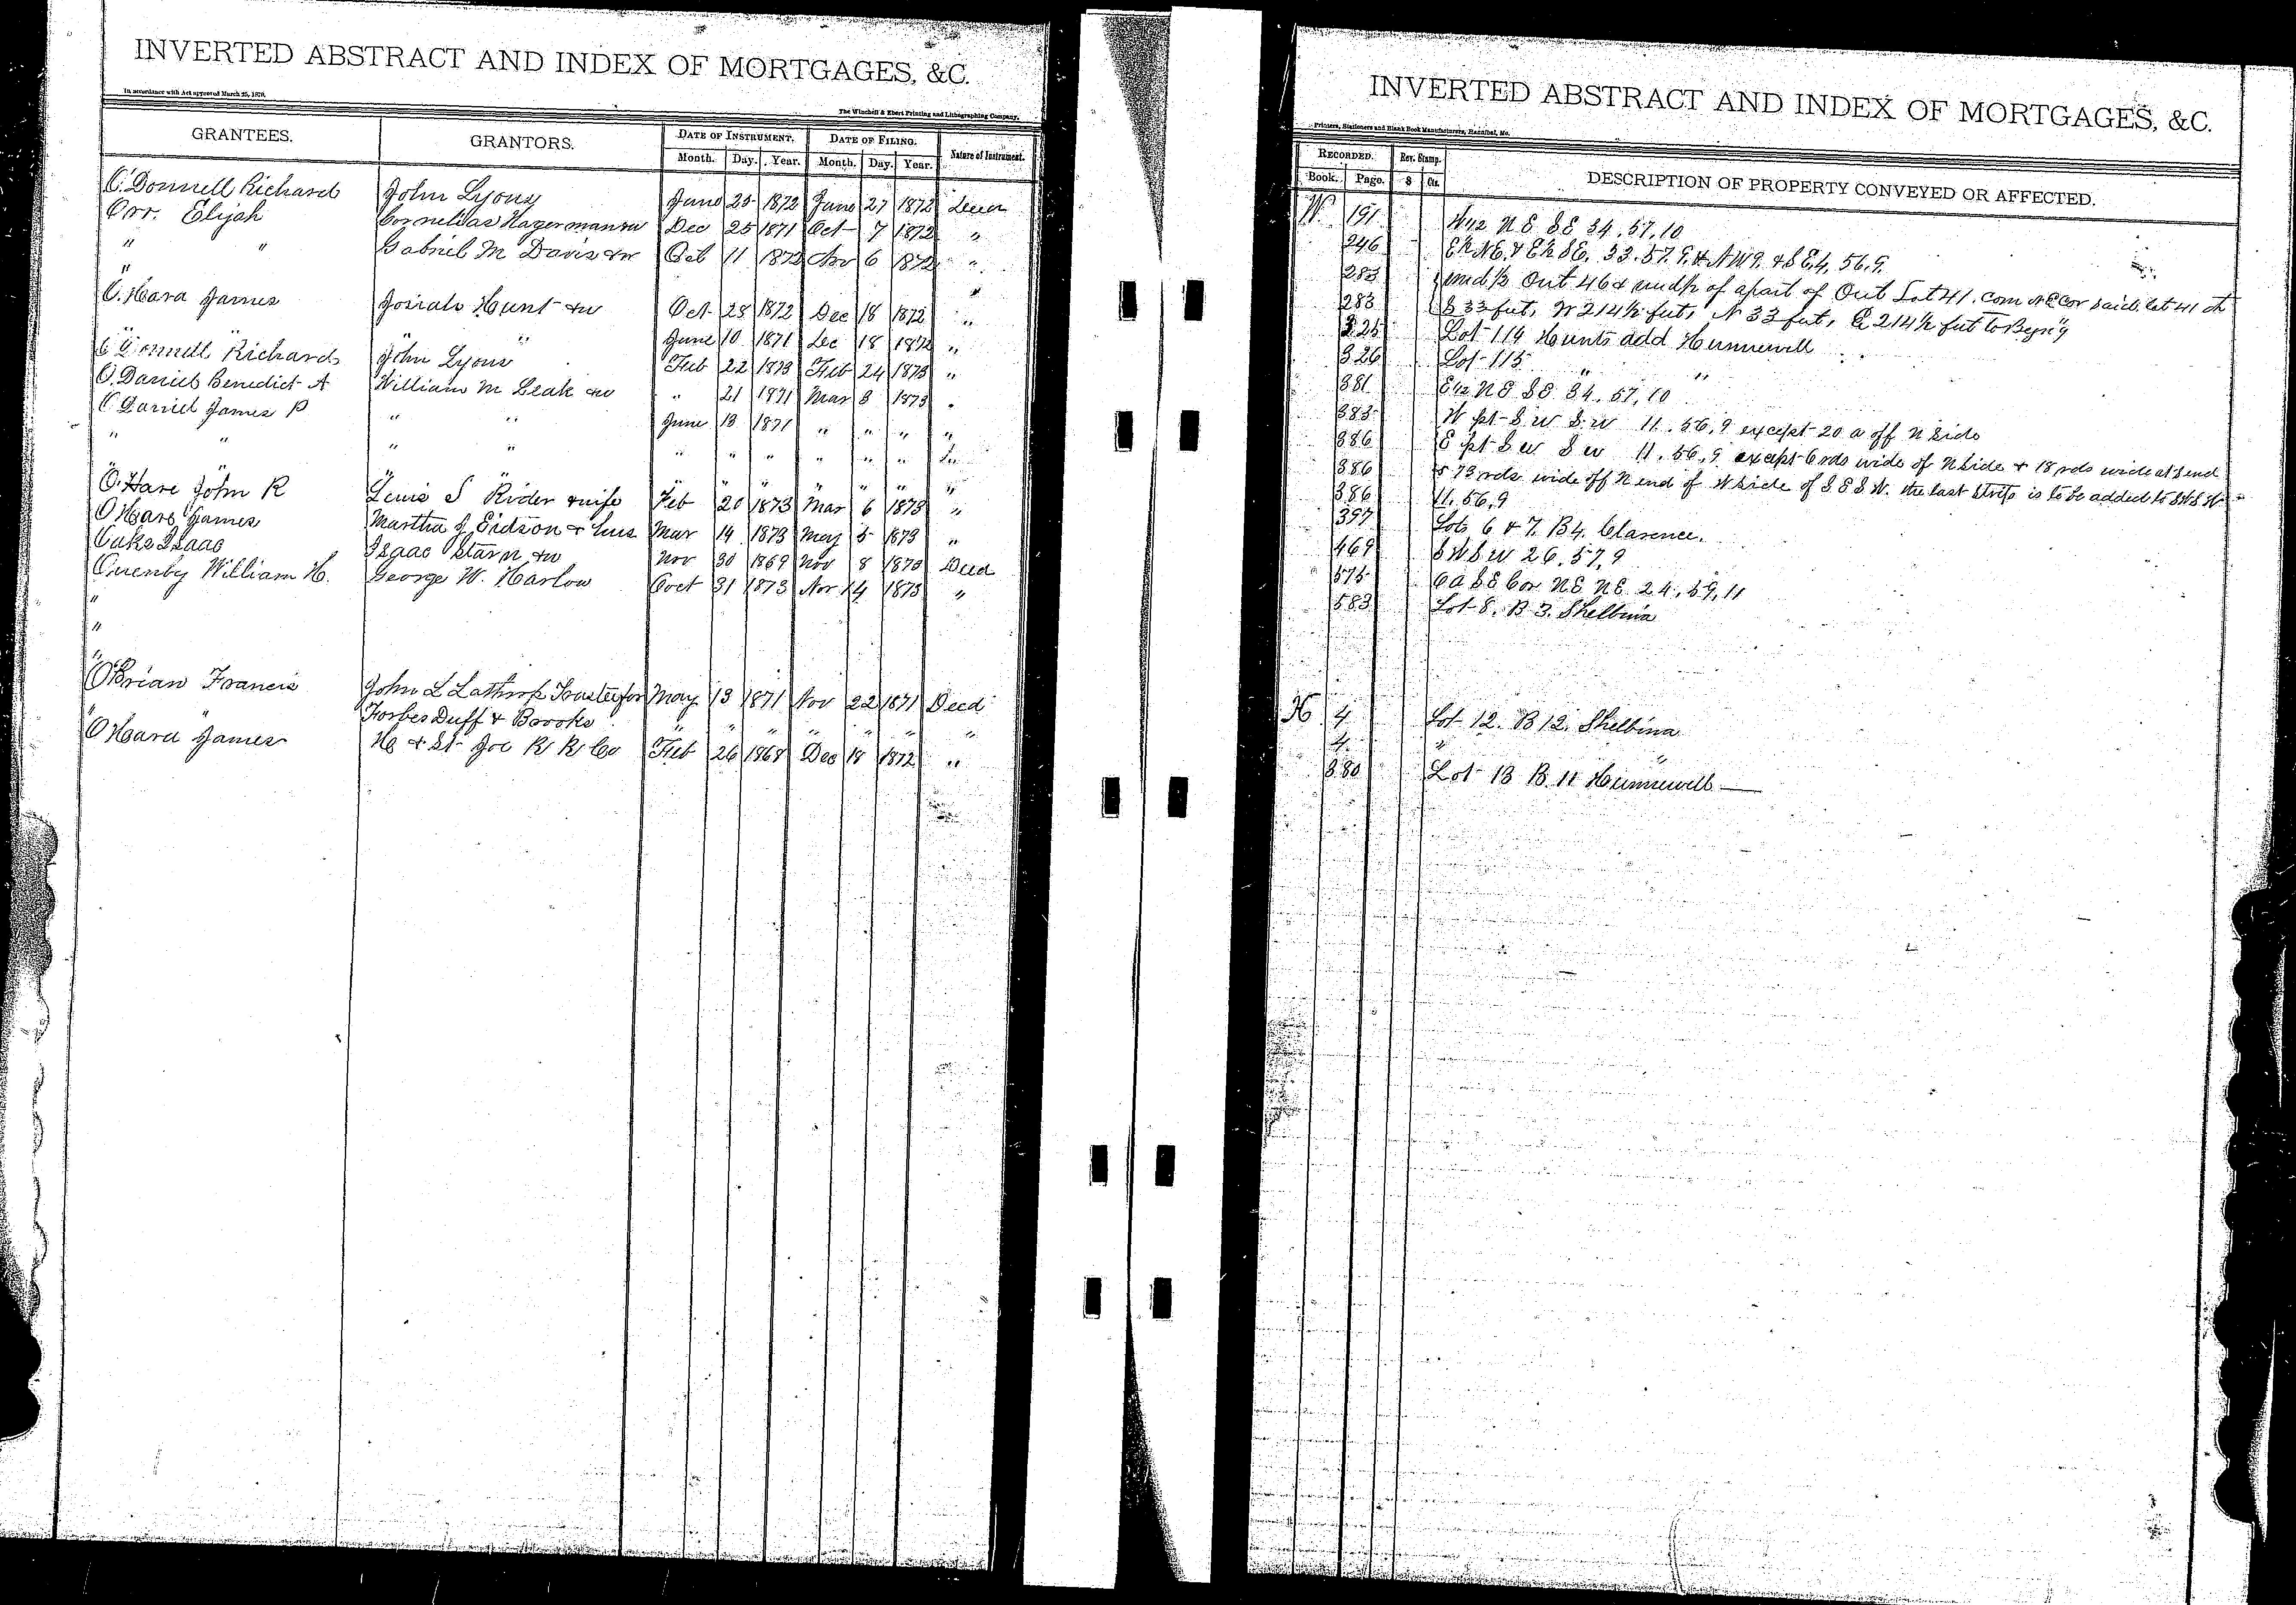 INVERTED ABSTRACT AND INDEX OF MORTGAGES, &C.
In accordance with Act approved March 25, 1870.
The Winchell & Ebert Printing and Lithographing Company,
GRANTEES. GRANTORS. DATE OF INSTRUMENT. DATE OF FILING. Nature of Instrument.
Month. Day. Year. Month. Day. Year.
O'Donnell Richard John Lyons June 25 1872 June 27 1872
Orr. Elijah Cornelius Hagerman &w Dec 25 1871 Oct 7 1872 "
" " Gabriel M Davis &w Oct 11 1872 Nov 6 1872 "
" "
O'Hara James Josiah Hunt &w Oct 28 1872 Dec 18 1872 "
" June 10 1871 Dec 18 1872 "
O'Donnell Richard John Lyons Feb 22 1873 Feb 24 1873 "
O'Daniel Benedict A William M Leak &w " 21 1871 Mar 8 1873 "
O'Daniel James P " " June 13 1871 " " " "
" " " " " " " " " "
" " " " " " "
O'Hare John R Lewis S Rider &wife Feb 20 1873 Mar 6 1873 "
O'Hare James Martha J Eidson & Mar 14 1873 May 5 1873 "
Oake Isaac Isaac Starn &w Nov 30 1869 Nov 8 1873 Deed
William H. George W. Harlow Oct 31 1873 Nov 14 1873 "
"
"
"
O'Brian Francis John L Lathrop Trustee for May 13 1871 Nov 22 1871 Deed
Forbes Duff & Brooks
" " " " " " " "
O'Hara James H & St Joe R R Co Feb 26 1868 Dec 18 1872 "
INVERTED ABSTRACT AND INDEX OF MORTGAGES, &C.
Printers, Stationers and Blank Book Manufacturers, Hannibal, Mo.
RECORDED. Rev. Stamp. DESCRIPTION OF PROPERTY CONVEYED OR AFFECTED.
Book. Page. $ Cts.
W. 191 W½ N E S E 34, 57, 10
246 E½ N E, & E½ S E. 33. 57. 9. & N W 9. & S E 4, 56, 9.
283 und ½ Out 46 & und ½ of a part of Out Lot 41. Com N E Cor said lot 41 th
283 S 33 feet, W 214½ feet, N 33 feet, E 214½ feet to Beg'n'g
325 Lot 114 Hunts add Hunnewell
326 Lot 115 " "
381 E½ N E S E 34, 57, 10
383 W pt S W S W 11, 56, 9 except 20 a off N side
386 E pt S W S W 11, 56, 9 except 6 rds wide of N side & 18 rds wide at S end
386 & 73 rds wide off N end of W side of S E S W. the last strip is to be added to S W S W
386 11, 56, 9
397 Lots 6 & 7. B 4. Clarence.
469 S W S W 26, 57, 9
575 6 a S E Cor N E N E 24, 59, 11
583 Lot 8, B 3. Shelbina
H 4 Lot 12. B 12. Shelbina
4 " "
380 Lot 13 B 11 Hunnewell